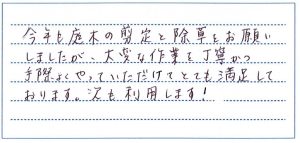 今年も庭木の剪定と除草をお願い
しましたが、大変な作業を丁寧かつ
手際よくやっていただけてとても満足して
おります。次も利用します!